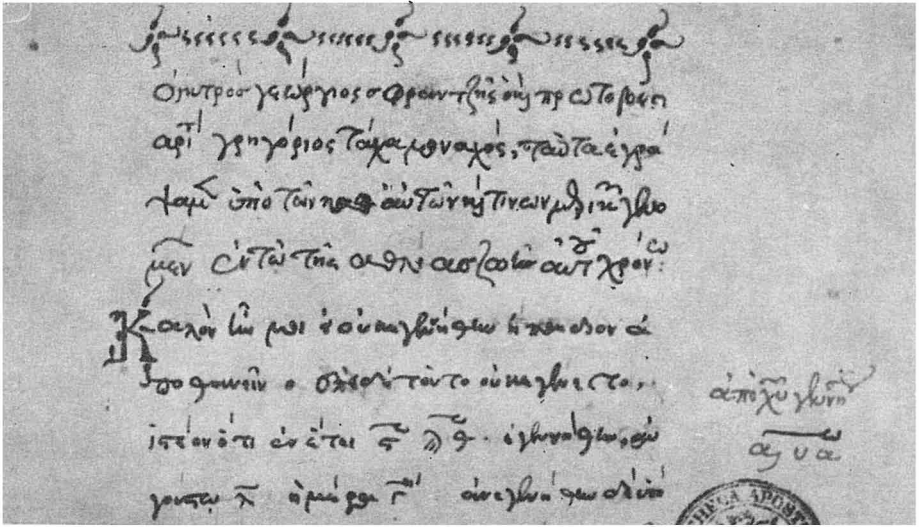 Ὁ οἰκτρὸς γεώργιος σφραντζῆς ὁ καὶ πρωτοβεστι
αρίτ γρηγόριος τάχα μοναχός, ταῦτα ἔγρα
ψαμ ὑπὲρ τῶν καθ αὑτὸν καί τινων μερικῶν γενο
μεν ἐν τῶ τῆς ἀθλίας ζωῆς αὐτ χρόνω:
Καλὸν ἦν μοι εἰ οὐκ ἐγεννήθην ἢ παιδίον ἀ
ποθανεῖν ὁ τοῦτο οὐκ ἐγένετο,
ἰστέον ὅτι ἐν ἔτει ἐγεννήθην, αὐ
γούστω λ ἡμέρα γ ἀνεγεννήθην δὲ
ἀπὸ χῦ γεννή
αυα